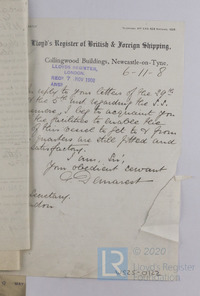 Lloyd's Register of British & Foreign Shipping,
Collingwood Buildings, Newcastle-on-Tyne.
6-11-8
LLOYDS REGISTER,
LONDON.
RECD 7 NOV 1908
reply to your letter of the 29th
the 5th Ind regarding the S.S.
I beg to acquaint you
the facilities to enable the
of this vessel to get to & from
quarters are still fitted and
satisfactory.
I am, Sir,
Your obedient servant
Secretary
London
© 2020
LR
Lloyd's Register
Foundation